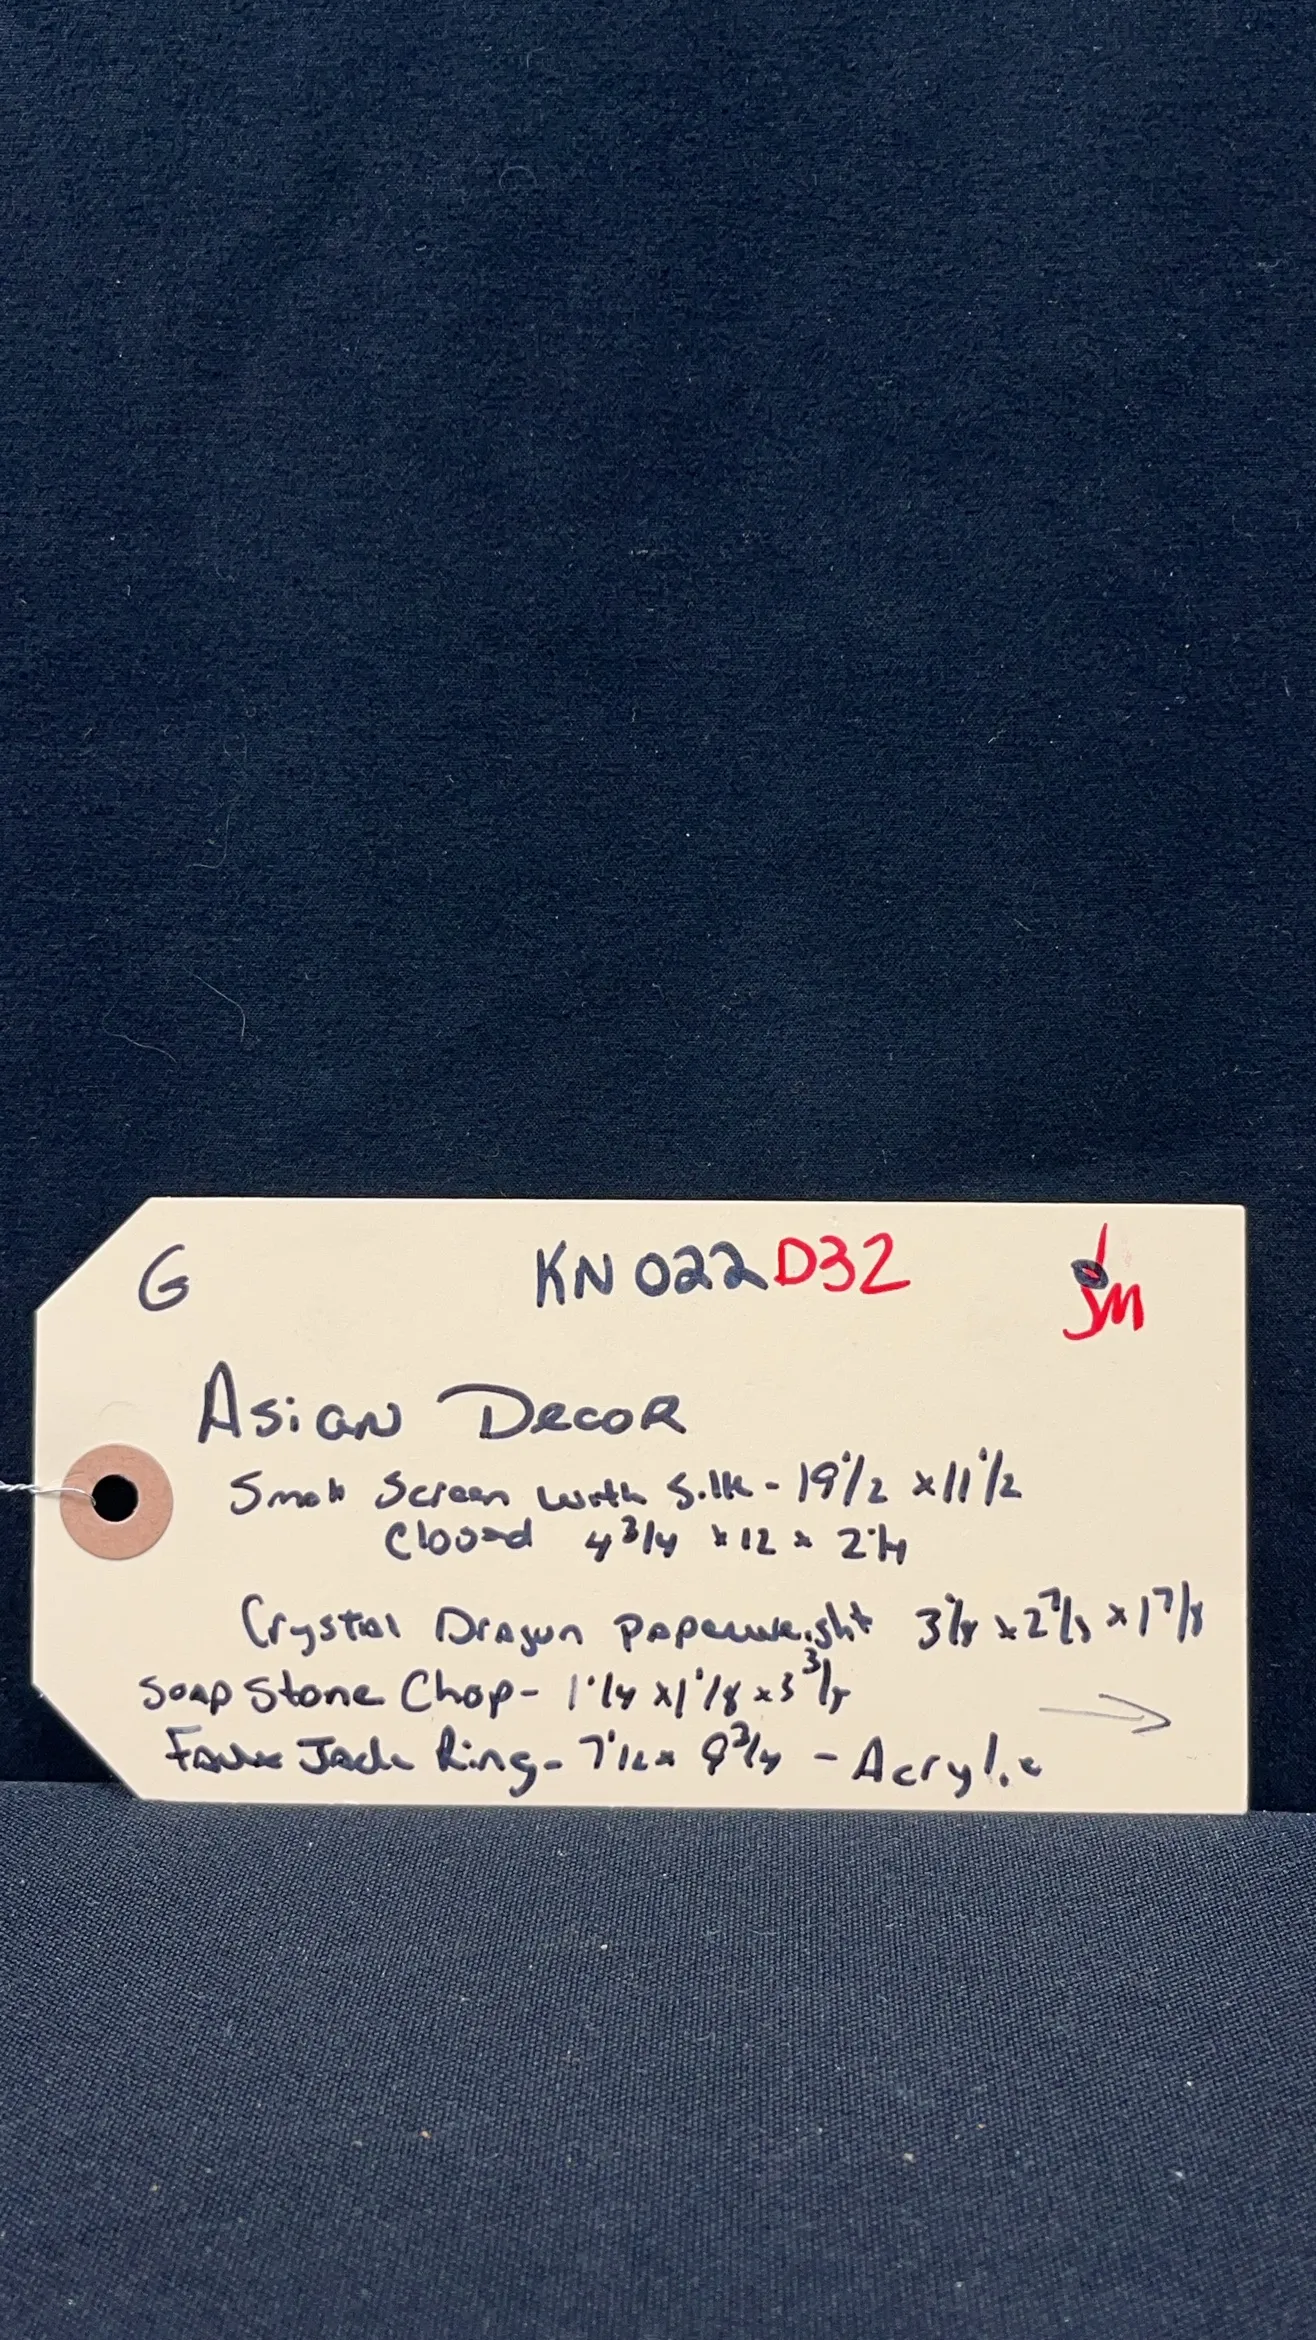 G KN022D32 JM
Asian Decor
Small Screen with Silk - 19 1/2 x 11 1/2
Closed 4 3/4 x 12 x 2 1/4
Crystal Dragon paperweight 3 1/8 x 2 7/8 x 1 7/8
Soap Stone Chop - 1 1/4 x 1 1/8 x 3 3/8
Faux Jade Ring - 7 1/2 x 9 3/4 - Acrylic